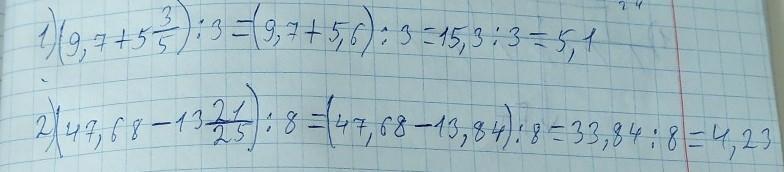 1) (9,7 + 5 3/5) : 3 = (9,7 + 5,6) : 3 = 15,3 : 3 = 5,1
2) (47,68 − 13 21/25) : 8 = (47,68 − 13,84) : 8 = 33,84 : 8 = 4,23